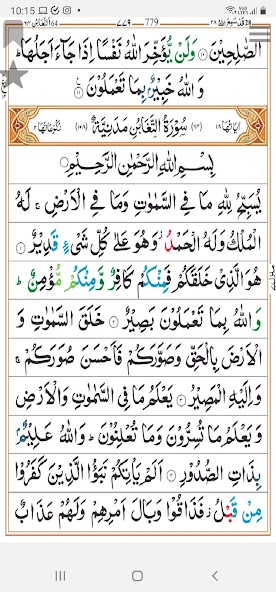 10:15
قد سمع الله ۲۸ 779 ۷۷۹ التغابن ۶۴
الصّٰلِحِيْنَ ۞ وَلَنْ يُّؤَخِّرَ اللّٰهُ نَفْسًا اِذَا جَآءَ اَجَلُهَاؕ
وَ اللّٰهُ خَبِيْرٌۢ بِمَا تَعْمَلُوْنَ
اٰيَاتُهَا ۱۸ (۶۴) سُوْرَةُ التَّغَابُنِ مَدَنِيَّةٌ (۱۰۸) رُكُوْعَاتُهَا ۲
بِسْمِ اللّٰهِ الرَّحْمٰنِ الرَّحِيْمِ
يُسَبِّحُ لِلّٰهِ مَا فِى السَّمٰوٰتِ وَمَا فِى الْاَرْضِۚ لَهُ
الْمُلْكُ وَلَهُ الْحَمْدُ وَهُوَ عَلٰى كُلِّ شَىْءٍ قَدِيْرٌ
هُوَ الَّذِىْ خَلَقَكُمْ فَمِنْكُمْ كَافِرٌ وَّمِنْكُمْ مُّؤْمِنٌؕ
وَاللّٰهُ بِمَا تَعْمَلُوْنَ بَصِيْرٌ خَلَقَ السَّمٰوٰتِ وَ
الْاَرْضَ بِالْحَقِّ وَصَوَّرَكُمْ فَاَحْسَنَ صُوَرَكُمْۚ
وَاِلَيْهِ الْمَصِيْرُ يَعْلَمُ مَا فِى السَّمٰوٰتِ وَالْاَرْضِ
وَيَعْلَمُ مَا تُسِرُّوْنَ وَمَا تُعْلِنُوْنَؕ وَاللّٰهُ عَلِيْمٌۢ
بِذَاتِ الصُّدُوْرِ اَلَمْ يَاْتِكُمْ نَبَؤُا الَّذِيْنَ كَفَرُوْا
مِنْ قَبْلُ فَذَاقُوْا وَبَالَ اَمْرِهِمْ وَلَهُمْ عَذَابٌ